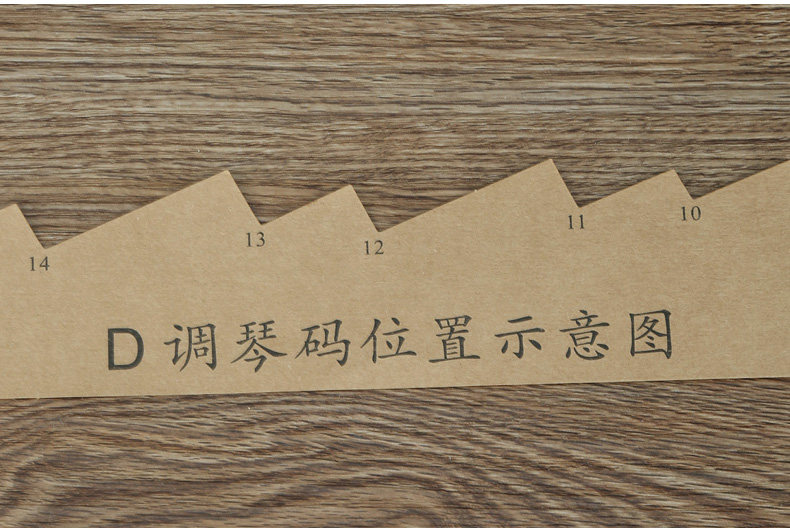 14 13 12 11 10
D调琴码位置示意图